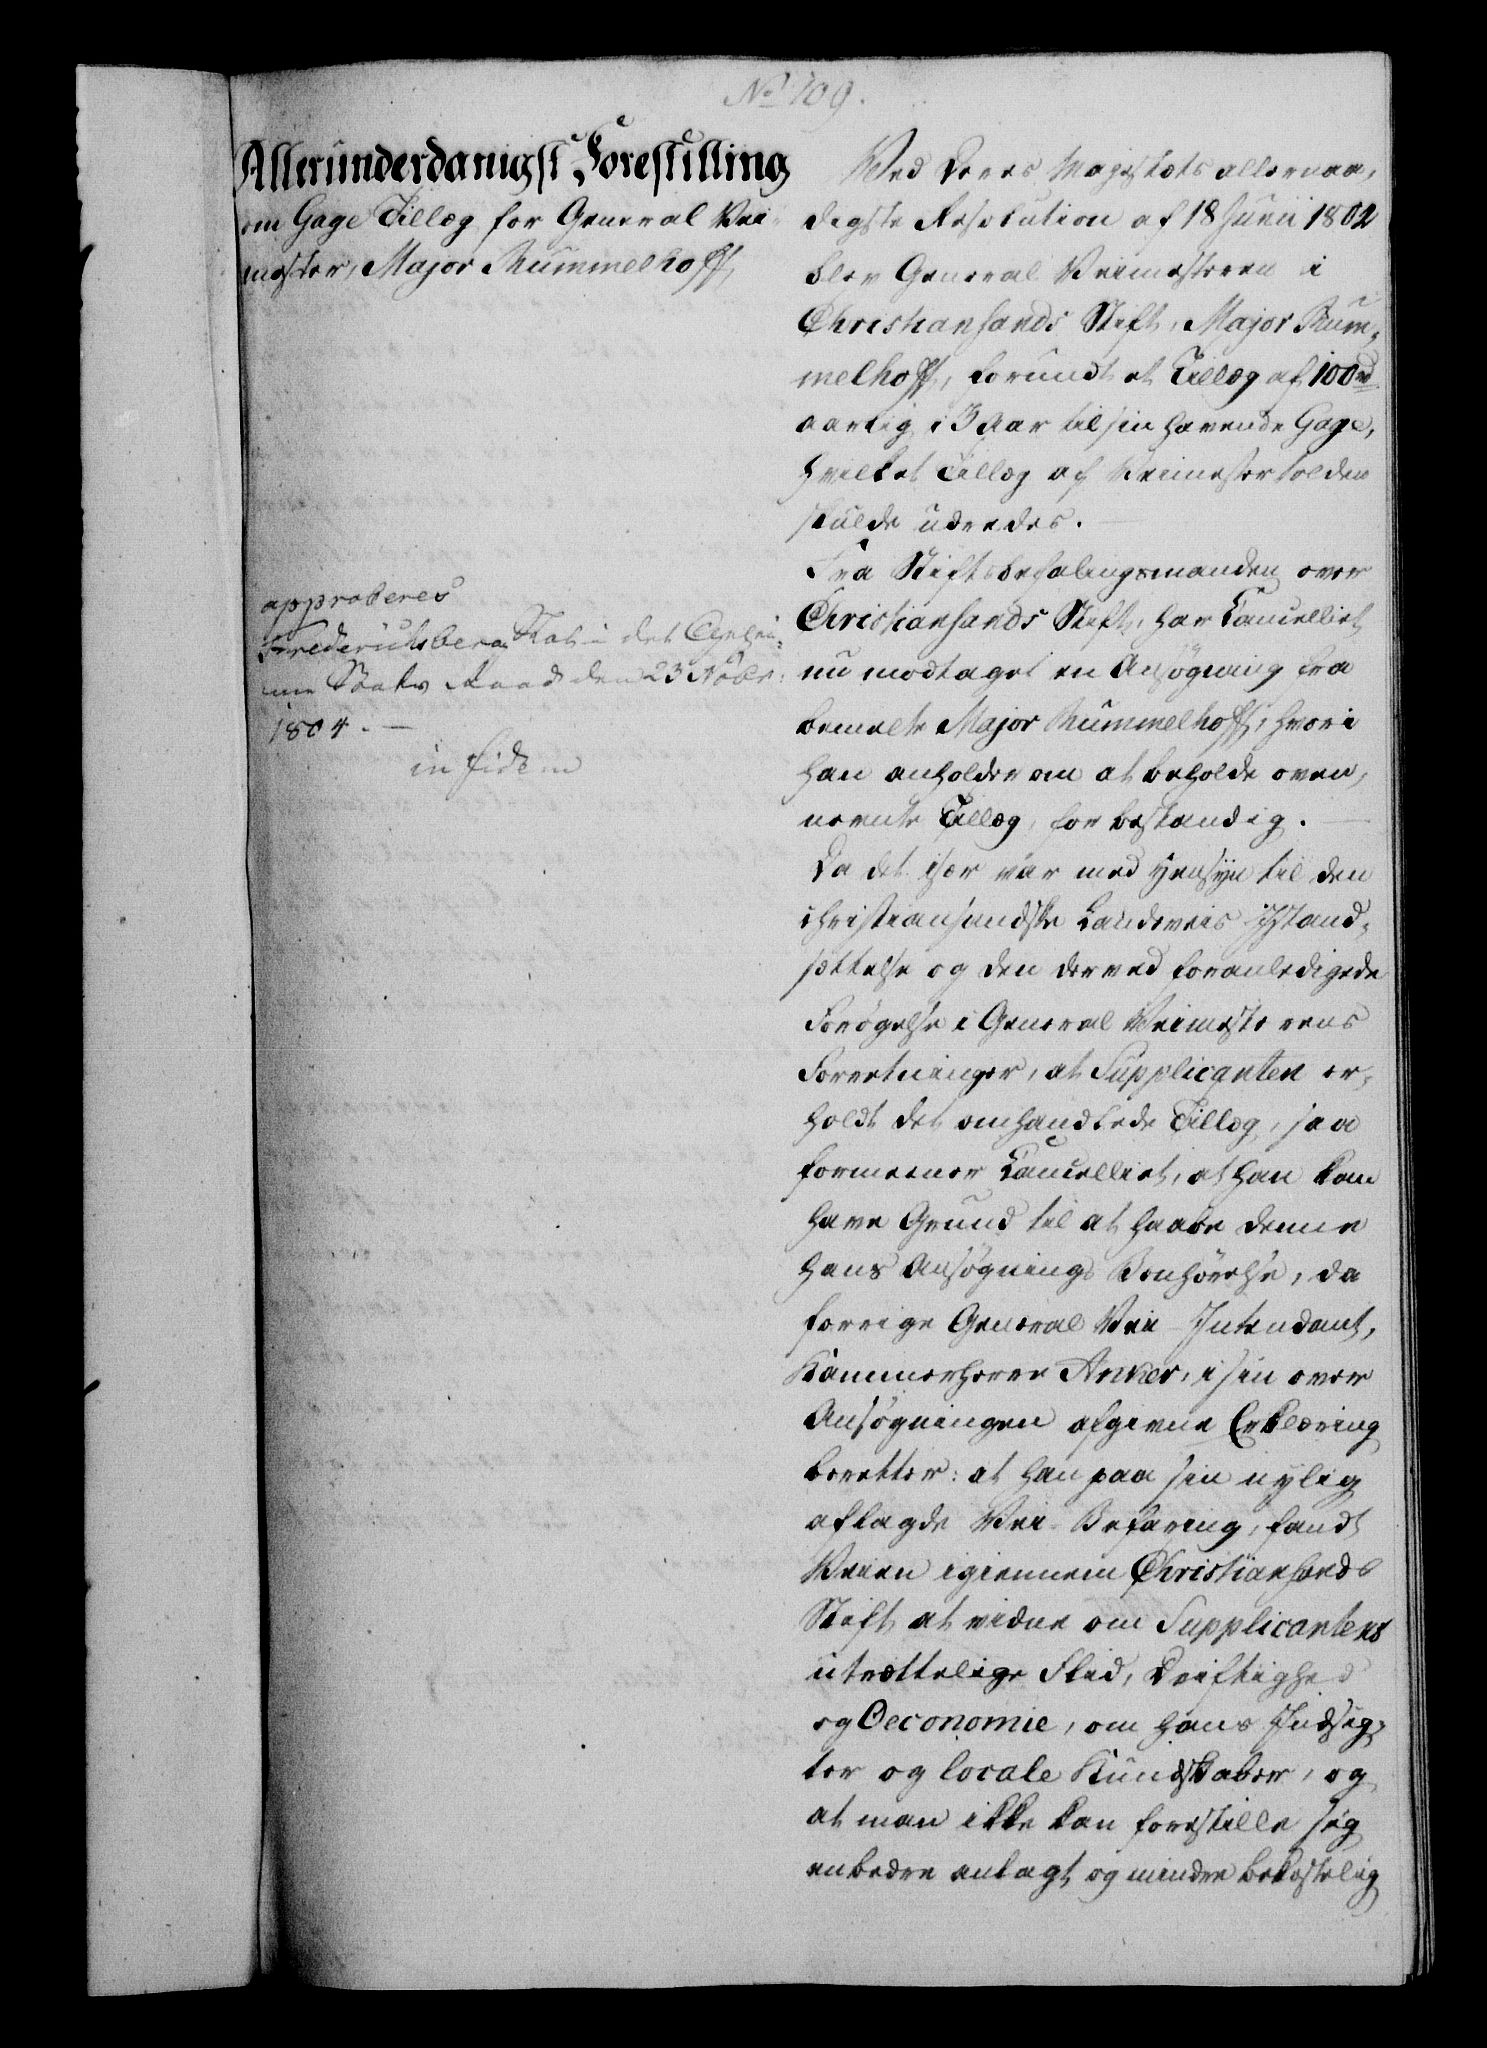 No 109.
Allerunderdanigst Forestilling
om Gage Tillæg for General Vei-
mester, Major Rummelhoff,
approberes
Frederichsberg Slot i det Gehei-
me Stats Raad den 23 Nobr:
1804. —
in fidem
Ved Deres Majestæts allernaa,
digste Resolution af 18 Junii 1802
blev General Veimesteren i
Christiansands Stift, Major Rum,
melhoff, forundt et Tillæg af 100 rd
aarlig i 3 Aar til sin havende Gage,
hvilket Tillæg af Veimestertolden
skulde udredes. —
Fra Stiftsbefalingsmanden over
Christiansands Stift, har Cancelliet
nu modtaget en Ansøgning fra
bemelte Major Rummelhoff, hvori
han anholder om at beholde oven,
nevnte Tillæg, for bestandig. —
Da det især var med Hensyn til den
christiansandske Landeveis Istand,
sættelse og den derved foranledigede
Forøgelse i General Veimesterens
Forretninger, at Supplicanten er,
holdt det omhandlede Tillæg, saa
formeener Cancelliet, at han kan
have Grund til at haabe denne
hans Ansøgnings Bønhørelse, da
forrige General Vei-Intendant,
Kammerherre Anker, i sin over
Ansøgningen afgivne Erklæring
beretter: at han paa sin nylig
aflagde Vei-Befaring, fandt
Veien igiennem Christiansands
Stift at vidne om Supplicantens
utrættelige Flid, Driftighed
og Oeconomie, om hans Indsig,
ter og locale Kundskaber, og
at man ikke kan forestille sig
en bedre anlagt og mindre bekostelig